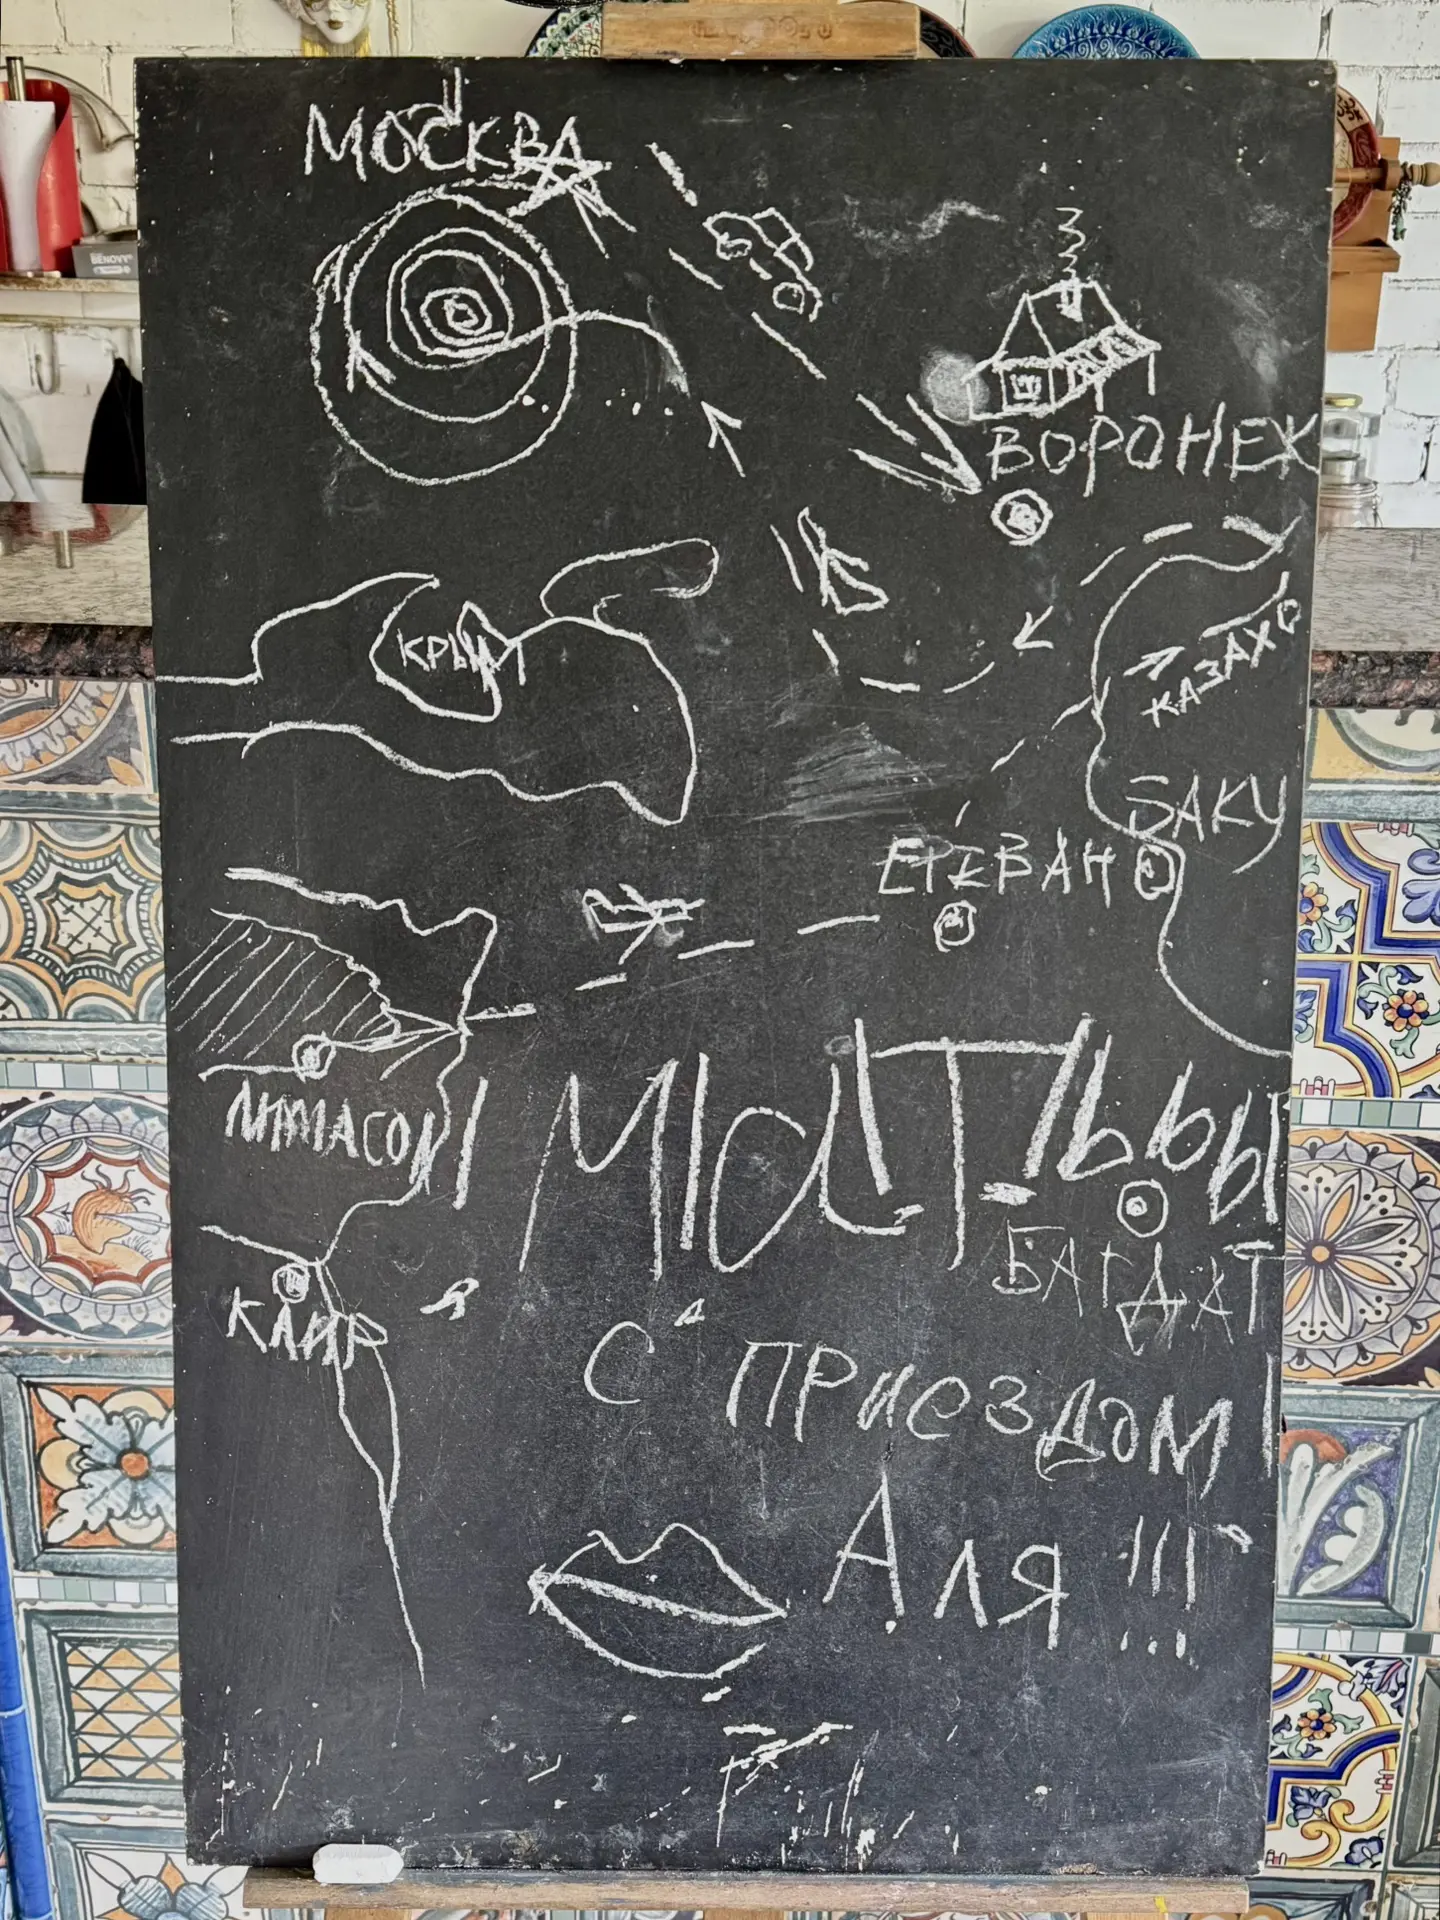 МОСКВА
ВОРОНЕЖ
КРЫМ
КАЗАХС
БАКУ
ЕРЕВАН
ЛИМАСОЛ
БАГДАТ
КАИР
С ПРИЕЗДОМ!
Аля !!!